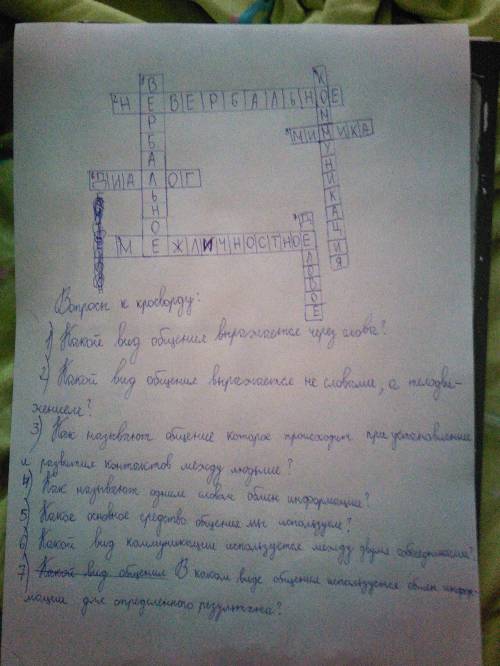 ВЕРБАЛЬНОЕ
НЕВЕРБАЛЬНОЕ
КОММУНИКАЦИЯ
МИМИКА
ДИАЛОГ
МЕЖЛИЧНОСТНОЕ
ДЕЛОВОЕ
Вопросы к кросворду:
1) Какой вид общения выражается через слова?
2) Какой вид общения выражается не словами, а телодви-
жением?
3) Как называют общение которое происходит при установлении
и развитии контактов между людьми?
4) Как называют одним словом обмен информации?
5) Какое основное средство общения мы используем?
6) Какой вид коммуникации используется между двумя собеседниками?
7) Какой вид общения В каком виде общения используется обмен инфор-
мации для определенного результата?